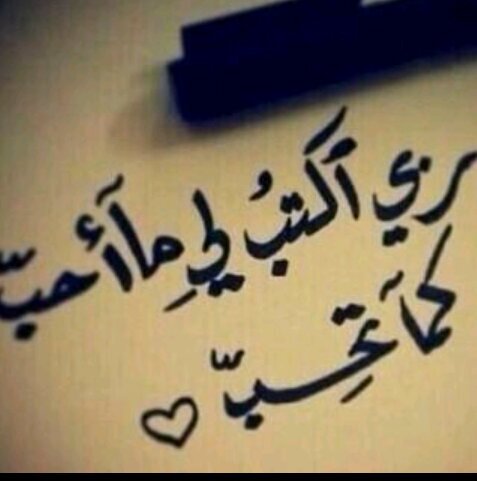 ربي اكتبُ لي مِا أحبّ
كما تحِبّ ♡